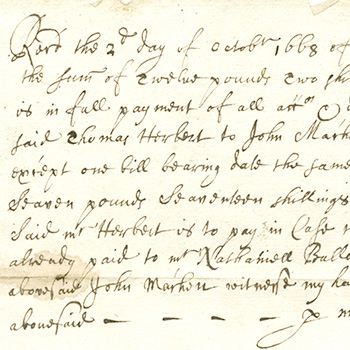 Rec'd the 2d day of Octobr 1668 of
the sum of Twelve pounds Two shi
is in full payment of all accts
said Thomas Herbert to John Marke
except one bill bearing date the same
seaven pounds seaventeen shillings
said mr Herbert is to pay in Case
already paid to mr Nathaniell Ball
abovesaid John Markett witnesse my ha
abovesaid — — — — p m